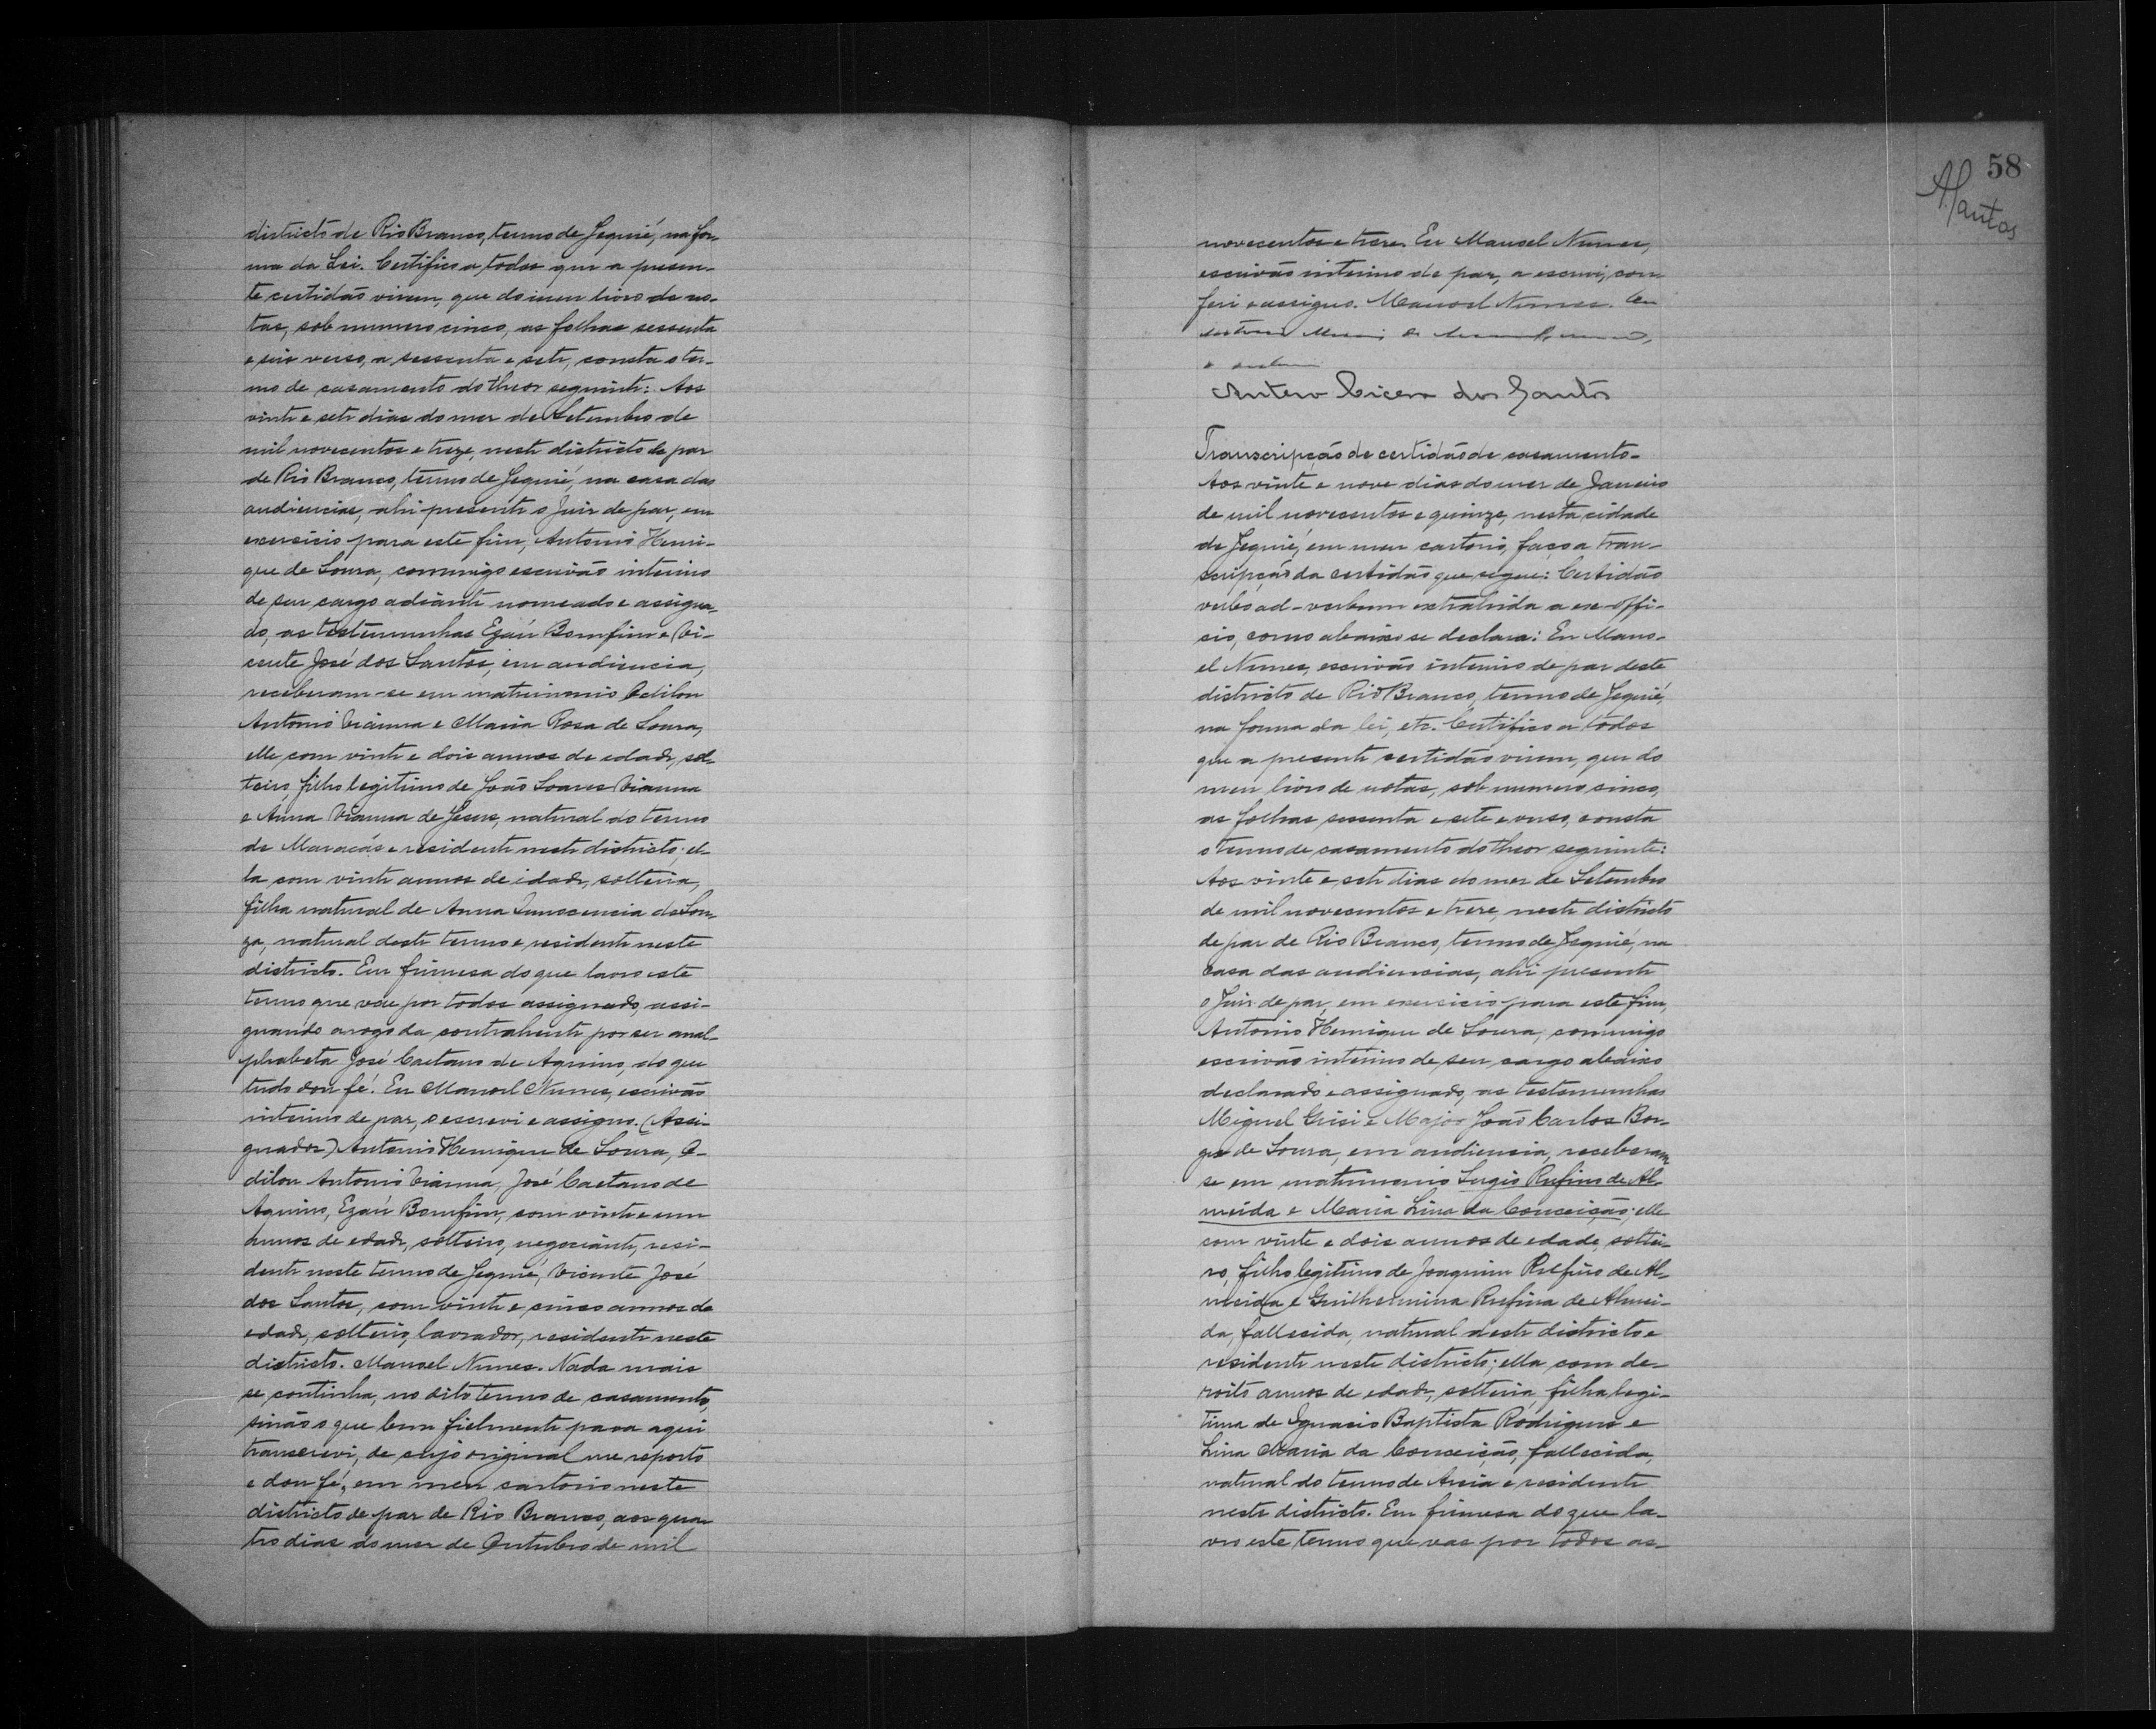 districto de Rio Branco, termo de Jequié, na for-
ma da Lei. Certifico a todos que a presen-
te certidão virem, que do meu livro de no-
tas, sob numero cinco, as folhas sessenta
e seis verso, a sessenta e sete, consta o ter-
mo de casamento do theor seguinte: Aos
vinte e sete dias do mez de Setembro de
mil novecentos e treze, neste districto de paz
de Rio Branco, termo de Jequié, na casa das
audiencias, ahi presente o Juiz de paz, em
exercicio para este fim, Antonio Henri-
que de Souza, commigo escrivão interino
de seu cargo adiante nomeado e assigna-
do, as testemunhas Ezaú Bomfim e Vi-
cente José dos Santos, em audiencia,
receberam-se em matrimonio Odilon
Antonio Vianna e Maria Rosa de Souza,
elle com vinte e dois annos de edade, sol-
teiro, filho legitimo de João Soares Vianna
e Anna Vianna de Jesus, natural do termo
de Maracás e residente neste districto; el-
la com vinte annos de idade, solteira,
filha natural de Anna Innocencia de Sou-
za, natural deste termo e residente neste
districto. Em firmesa do que lavro este
termo que vae por todos assignado, assi-
gnando a rogo da contrahente por ser anal-
phabeta José Caetano de Aquino, do que
tudo dou fé. Eu Manoel Nunes, escrivão
interino de paz, o escrevi e assigno. (Assi-
gnados) Antonio Henrique de Souza, O-
dilon Antonio Vianna, José Caetano de
Aquino, Ezaú Bomfim, com vinte e um
annos de edade, solteiro, negociante, resi-
dente neste termo de Jequié, Vicente José
dos Santos, com vinte e cinco annos de
edade, solteiro, lavrador, residente neste
districto. Manoel Nunes. Nada mais
se continha, no dito termo de casamento,
sinão o que bem fielmente para aqui
transcrevi, de cujo original me reporto
e dou fé, em meu cartorio neste
districto de paz de Rio Branco, aos qua-
tro dias do mez de Outubro de mil
58
novecentos e treze. Eu Manoel Nunes,
escrivão interino de paz, a escrevi, con-
feri e assigno. Manoel Nunes.
Antero Cicero dos Santos
Transcripção de certidão de casamento-
Aos vinte e nove dias do mez de Janeiro
de mil novecentos e quinze, nesta cidade
de Jequié, em meu cartorio, faço a tran-
scripção da certidão que segue: Certidão
verbo ad-verbum extrahida a ex-offi-
cio, como abaixo se declara: Eu Mano-
el Nunes, escrivão interino de paz deste
districto de Rio Branco, termo de Jequié,
na forma da lei, etc. Certifico a todos
que a presente certidão virem, que do
meu livro de notas, sob numero cinco,
as folhas sessenta e sete e verso, consta
o termo de casamento do theor seguinte:
Aos vinte e sete dias do mez de Setembro
de mil novecentos e treze, neste districto
de paz de Rio Branco, termo de Jequié, na
casa das audiencias, ahi presente
o Juiz de paz, em exercicio para este fim,
Antonio Henrique de Souza, commigo
escrivão interino de seu cargo abaixo
declarado e assignado, as testemunhas
Miguel Grisi e Major João Carlos Bor-
ges de Souza, em audiencia, receberam-
se em matrimonio Sergio Rufino de Al-
meida e Maria Lina da Conceição; elle
com vinte e dois annos de edade, soltei-
ro, filho legitimo de Joaquim Rufino de Al-
meida e Guilhermina Rufina de Almei-
da, fallecida, natural deste districto e
residente neste districto; ella com de-
zoito annos de edade, solteira, filha legi-
tima de Ignacio Baptista Rodrigues e
Lina Maria da Conceição, fallecida,
natural do termo de Areia e residente
neste districto. Em firmesa do que la-
vro este termo que vae por todos as-